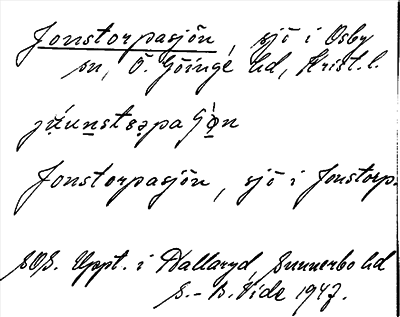 Jonstorpasjön, sjö i Osby
sn, Ö. Göinge hd, Krist. l.
Jonstorpasjön, sjö i Jonstorp.
SOS. Uppt. i Hallaryd, Sunnerbo hd
S.-B. Vide 1947.